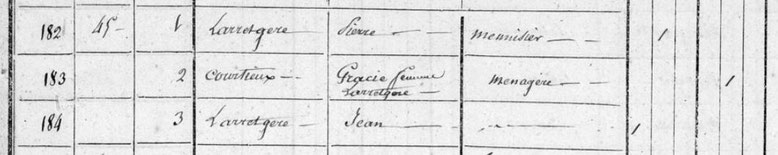 182 45 1 Larretgere Pierre — menuisier — 1
183 2 Courtieux — Gracie femme Larretgere — menagère — 1
184 3 Larretgere — Jean — — 1